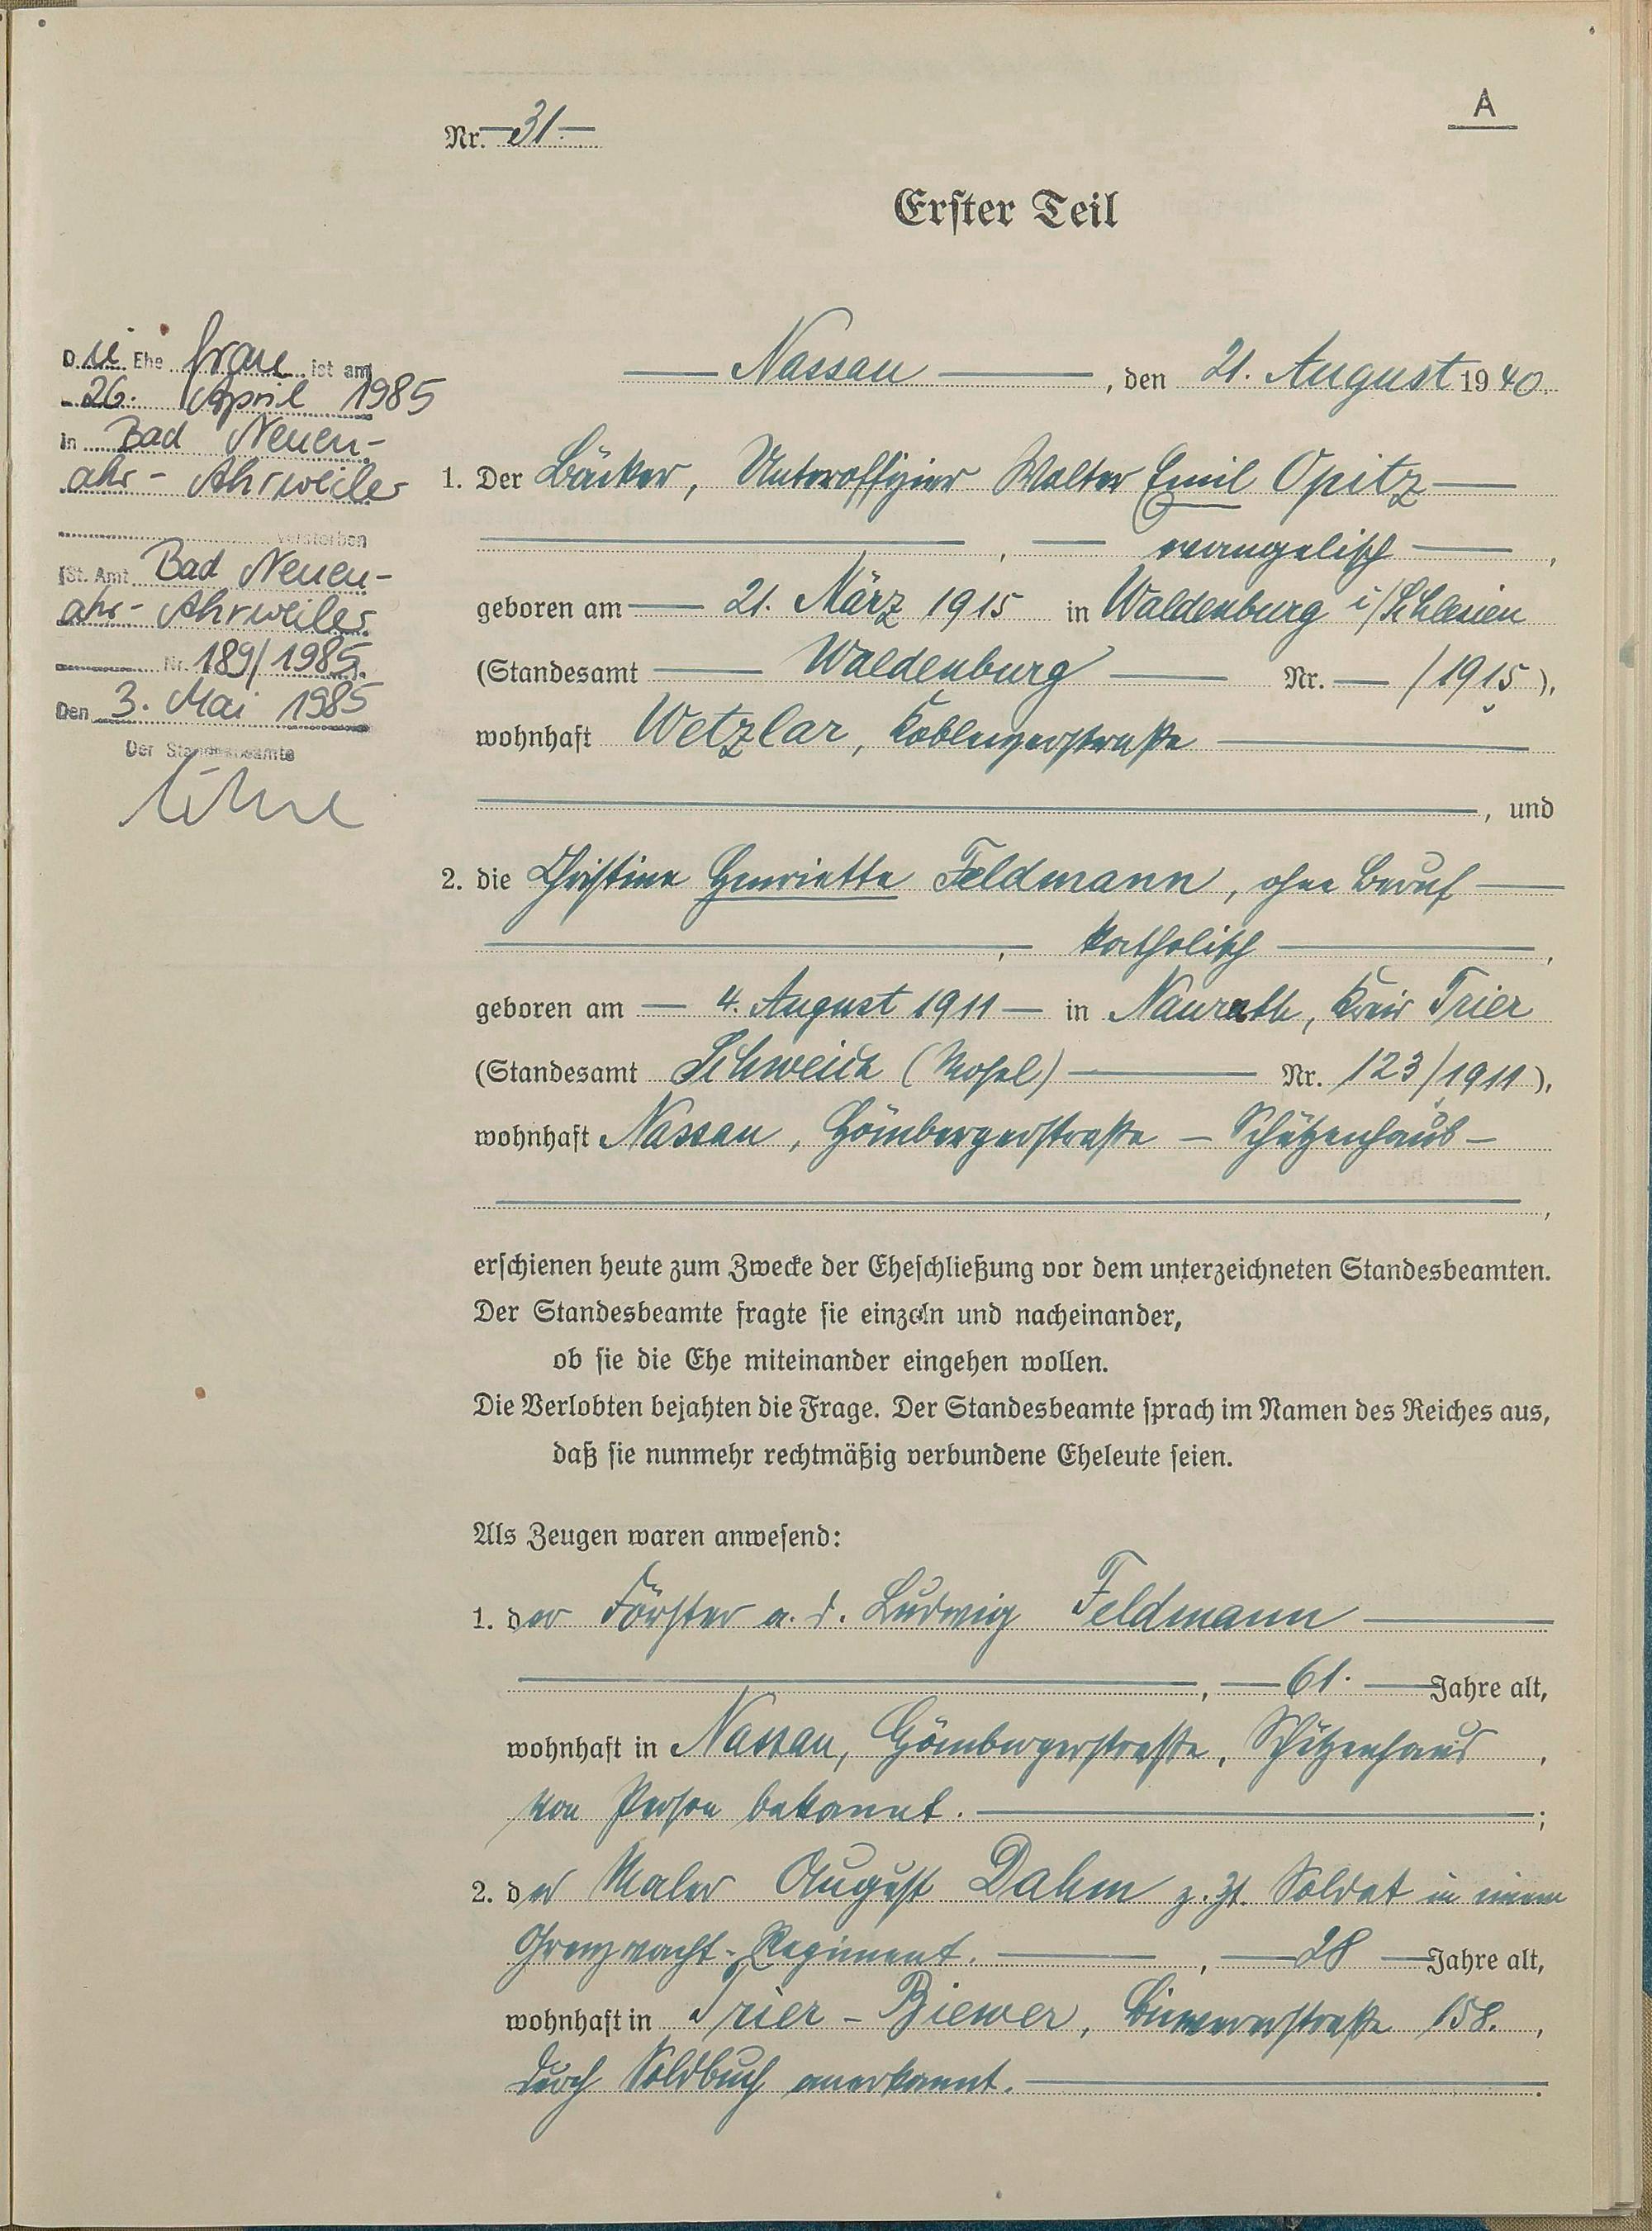 A
Nr. 31.
Erster Teil
Nassau, den 21. August 1940.
1. Der Bäcker, Unteroffizier Walter Emil Opitz
, evangelisch,
geboren am 21. März 1915 in Waldenburg i/Schlesien
(Standesamt Waldenburg Nr. — /1915),
wohnhaft Wetzlar, Koblenzerstraße
, und
2. die Christine Henriette Feldmann, ohne Beruf
, katholisch,
geboren am 4. August 1911 in Naurath, Kreis Trier
(Standesamt Schweich (Mosel) Nr. 123/1911),
wohnhaft Nassau, Hömbergerstraße - Schützenhaus -
,
erschienen heute zum Zwecke der Eheschließung vor dem unterzeichneten Standesbeamten.
Der Standesbeamte fragte sie einzeln und nacheinander,
ob sie die Ehe miteinander eingehen wollen.
Die Verlobten bejahten die Frage. Der Standesbeamte sprach im Namen des Reiches aus,
daß sie nunmehr rechtmäßig verbundene Eheleute seien.
Als Zeugen waren anwesend:
1. der Förster a. D. Ludwig Feldmann
, 61. Jahre alt,
wohnhaft in Nassau, Hömbergerstraße, Schützenhaus,
von Person bekannt. ;
2. der Maler August Dahm z. Zt. Soldat in einem
Grenzwacht-Regiment. , 28 Jahre alt,
wohnhaft in Trier-Biewer, Biewererstraße 158. ,
durch Soldbuch anerkannt. .
Die Ehefrau ist am
26. April 1985
in Bad Neuen-
ahr-Ahrweiler
verstorben
(St. Amt Bad Neuen-
ahr-Ahrweiler
Nr. 189/1985.
Den 3. Mai 1985
Der Standesbeamte